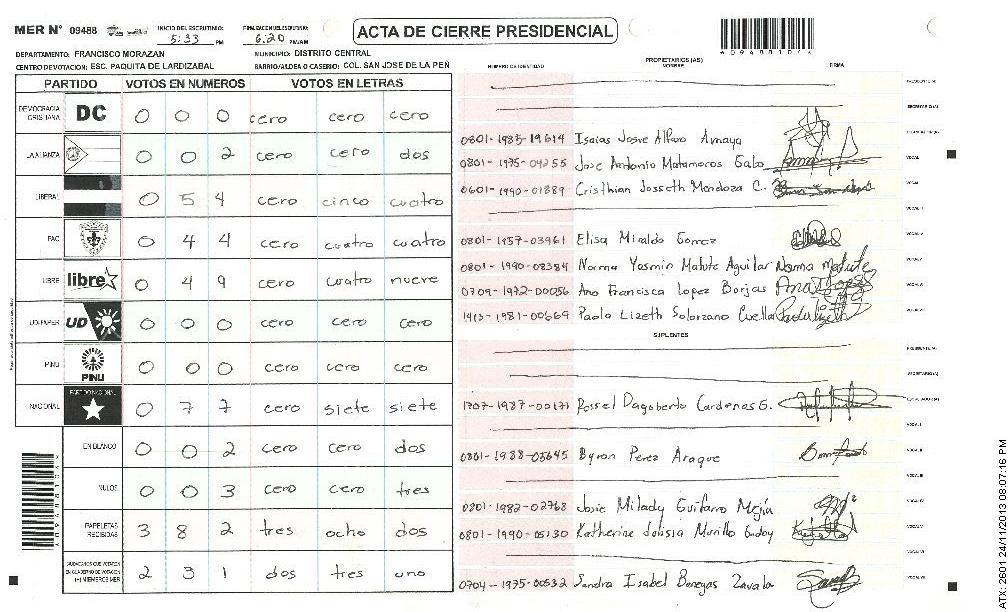 MER N° 09488 INICIO DEL ESCRUTINIO: 5:33 PM FINALIZACION ESCRUTINIO: 6:20 PM/AM ACTA DE CIERRE PRESIDENCIAL
DEPARTAMENTO: FRANCISCO MORAZAN MUNICIPIO: DISTRITO CENTRAL
CENTRO DE VOTACION: ESC. PAQUITA DE LARDIZABAL BARRIO/ALDEA O CASERIO: COL. SAN JOSE DE LA PEÑ
PARTIDO VOTOS EN NUMEROS VOTOS EN LETRAS
DEMOCRACIA CRISTIANA DC 0 0 0 cero cero cero
LA ALIANZA 0 0 2 cero cero dos
LIBERAL 0 5 4 cero cinco cuatro
PAC 0 4 4 cero cuatro cuatro
LIBRE libre 0 4 9 cero cuatro nueve
UD/FAPER UD 0 0 0 cero cero cero
PINU PINU 0 0 0 cero cero cero
NACIONAL PARTIDO NACIONAL 0 7 7 cero siete siete
EN BLANCO 0 0 2 cero cero dos
NULOS 0 0 3 cero cero tres
PAPELETAS RECIBIDAS 3 8 2 tres ocho dos
CIUDADANOS QUE VOTARON EN CUADERNO DE VOTACION (+) MIEMBROS MER 2 3 1 dos tres uno
NUMERO DE IDENTIDAD PROPIETARIOS (AS) NOMBRE FIRMA
PRESIDENTE (A)
SECRETARIO (A)
0801-1985-19614 Isaias Josue Alfaro Amaya
0801-1975-04255 Jose Antonio Matamoros Galo VOCAL I
0601-1990-01889 Cristhian Josseth Mendoza C. VOCAL II
VOCAL III
0801-1957-03961 Elisa Miralda Gomez VOCAL IV
0801-1990-08384 Norma Yasmin Matute Aguilar Norma Matute VOCAL V
0709-1972-00056 Ana Francisca Lopez Borjas VOCAL VI
1413-1981-00669 Paola Lizeth Solorzano Cuella VOCAL VII
SUPLENTES
PRESIDENTE (A)
SECRETARIO (A)
1707-1987-00171 Rossel Dagoberto Cardenas G.
VOCAL I
0801-1988-05645 Byron Perez Araque VOCAL II
VOCAL III
0801-1982-02768 Josie Milady Guifarro Mejia VOCAL IV
0801-1990-05130 Katherine Julissia Murillo Godoy VOCAL V
VOCAL VI
0704-1975-00532 Sandra Isabel Banegas Zavala VOCAL VII
ATX: 2601 24/11/2013 08:07:16 PM